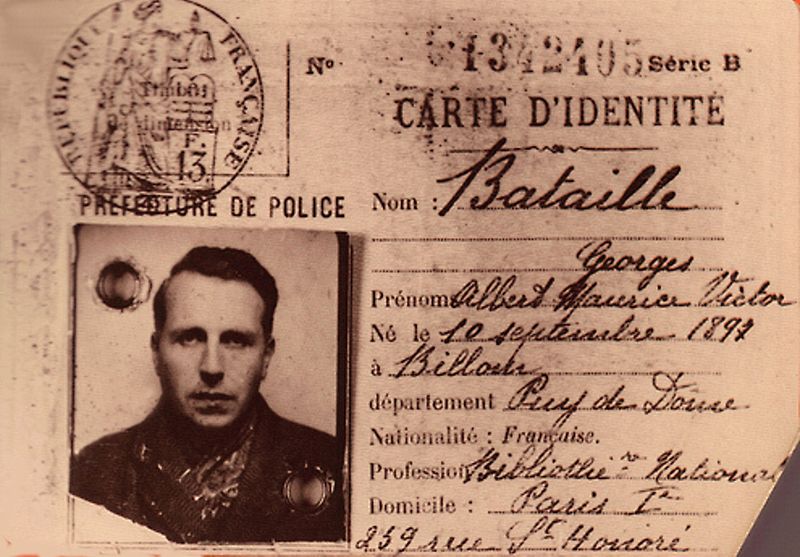 RÉPUBLIQUE FRANÇAISE
Timbre
Dimension
F.
13
PREFECTURE DE POLICE
Nº 1342405 Série B
CARTE D'IDENTITÉ
Nom : Bataille
Georges
Prénom Albert Maurice Victor
Né le 10 septembre 1897
à Billom
département Puy de Dôme
Nationalité : Française.
Profession Bibliothére National
Domicile : Paris 1er
239 rue St Honoré